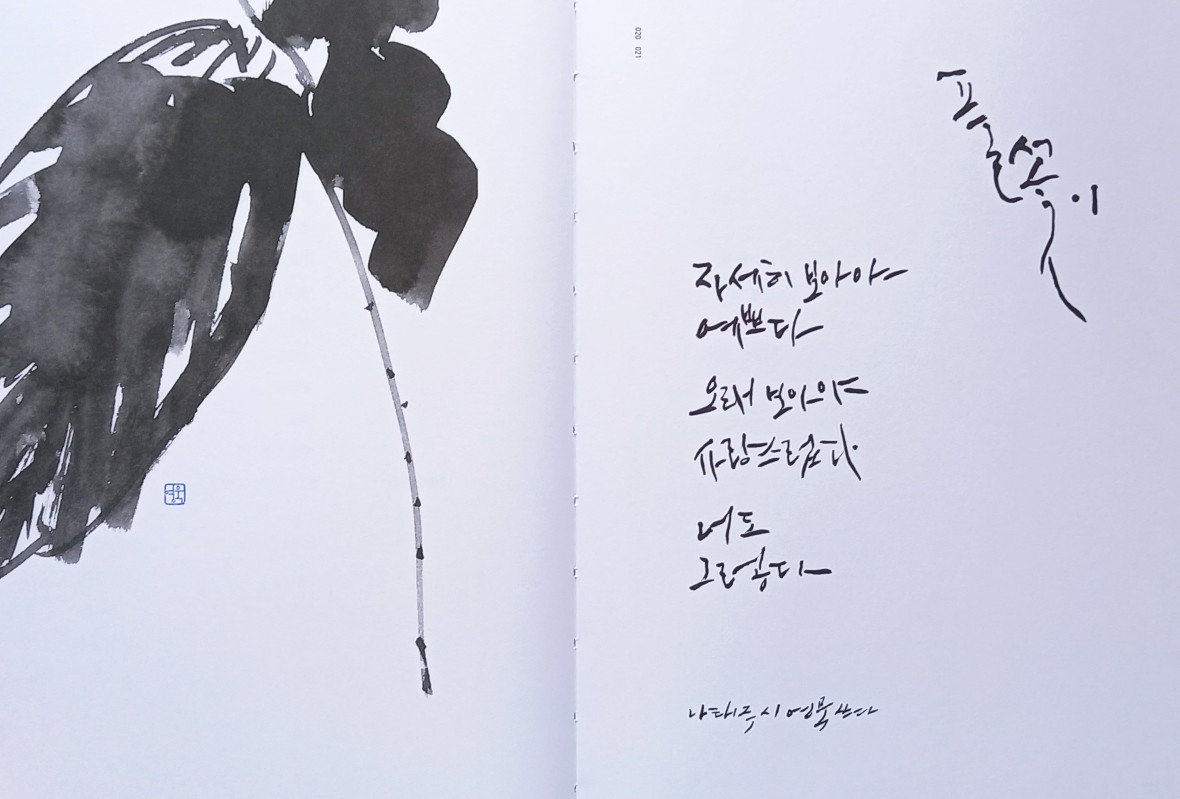 020 021
자세히 보아야
예쁘다
오래 보아야
사랑스럽다
너도
그렇다
나태주 시 영묵 쓰다